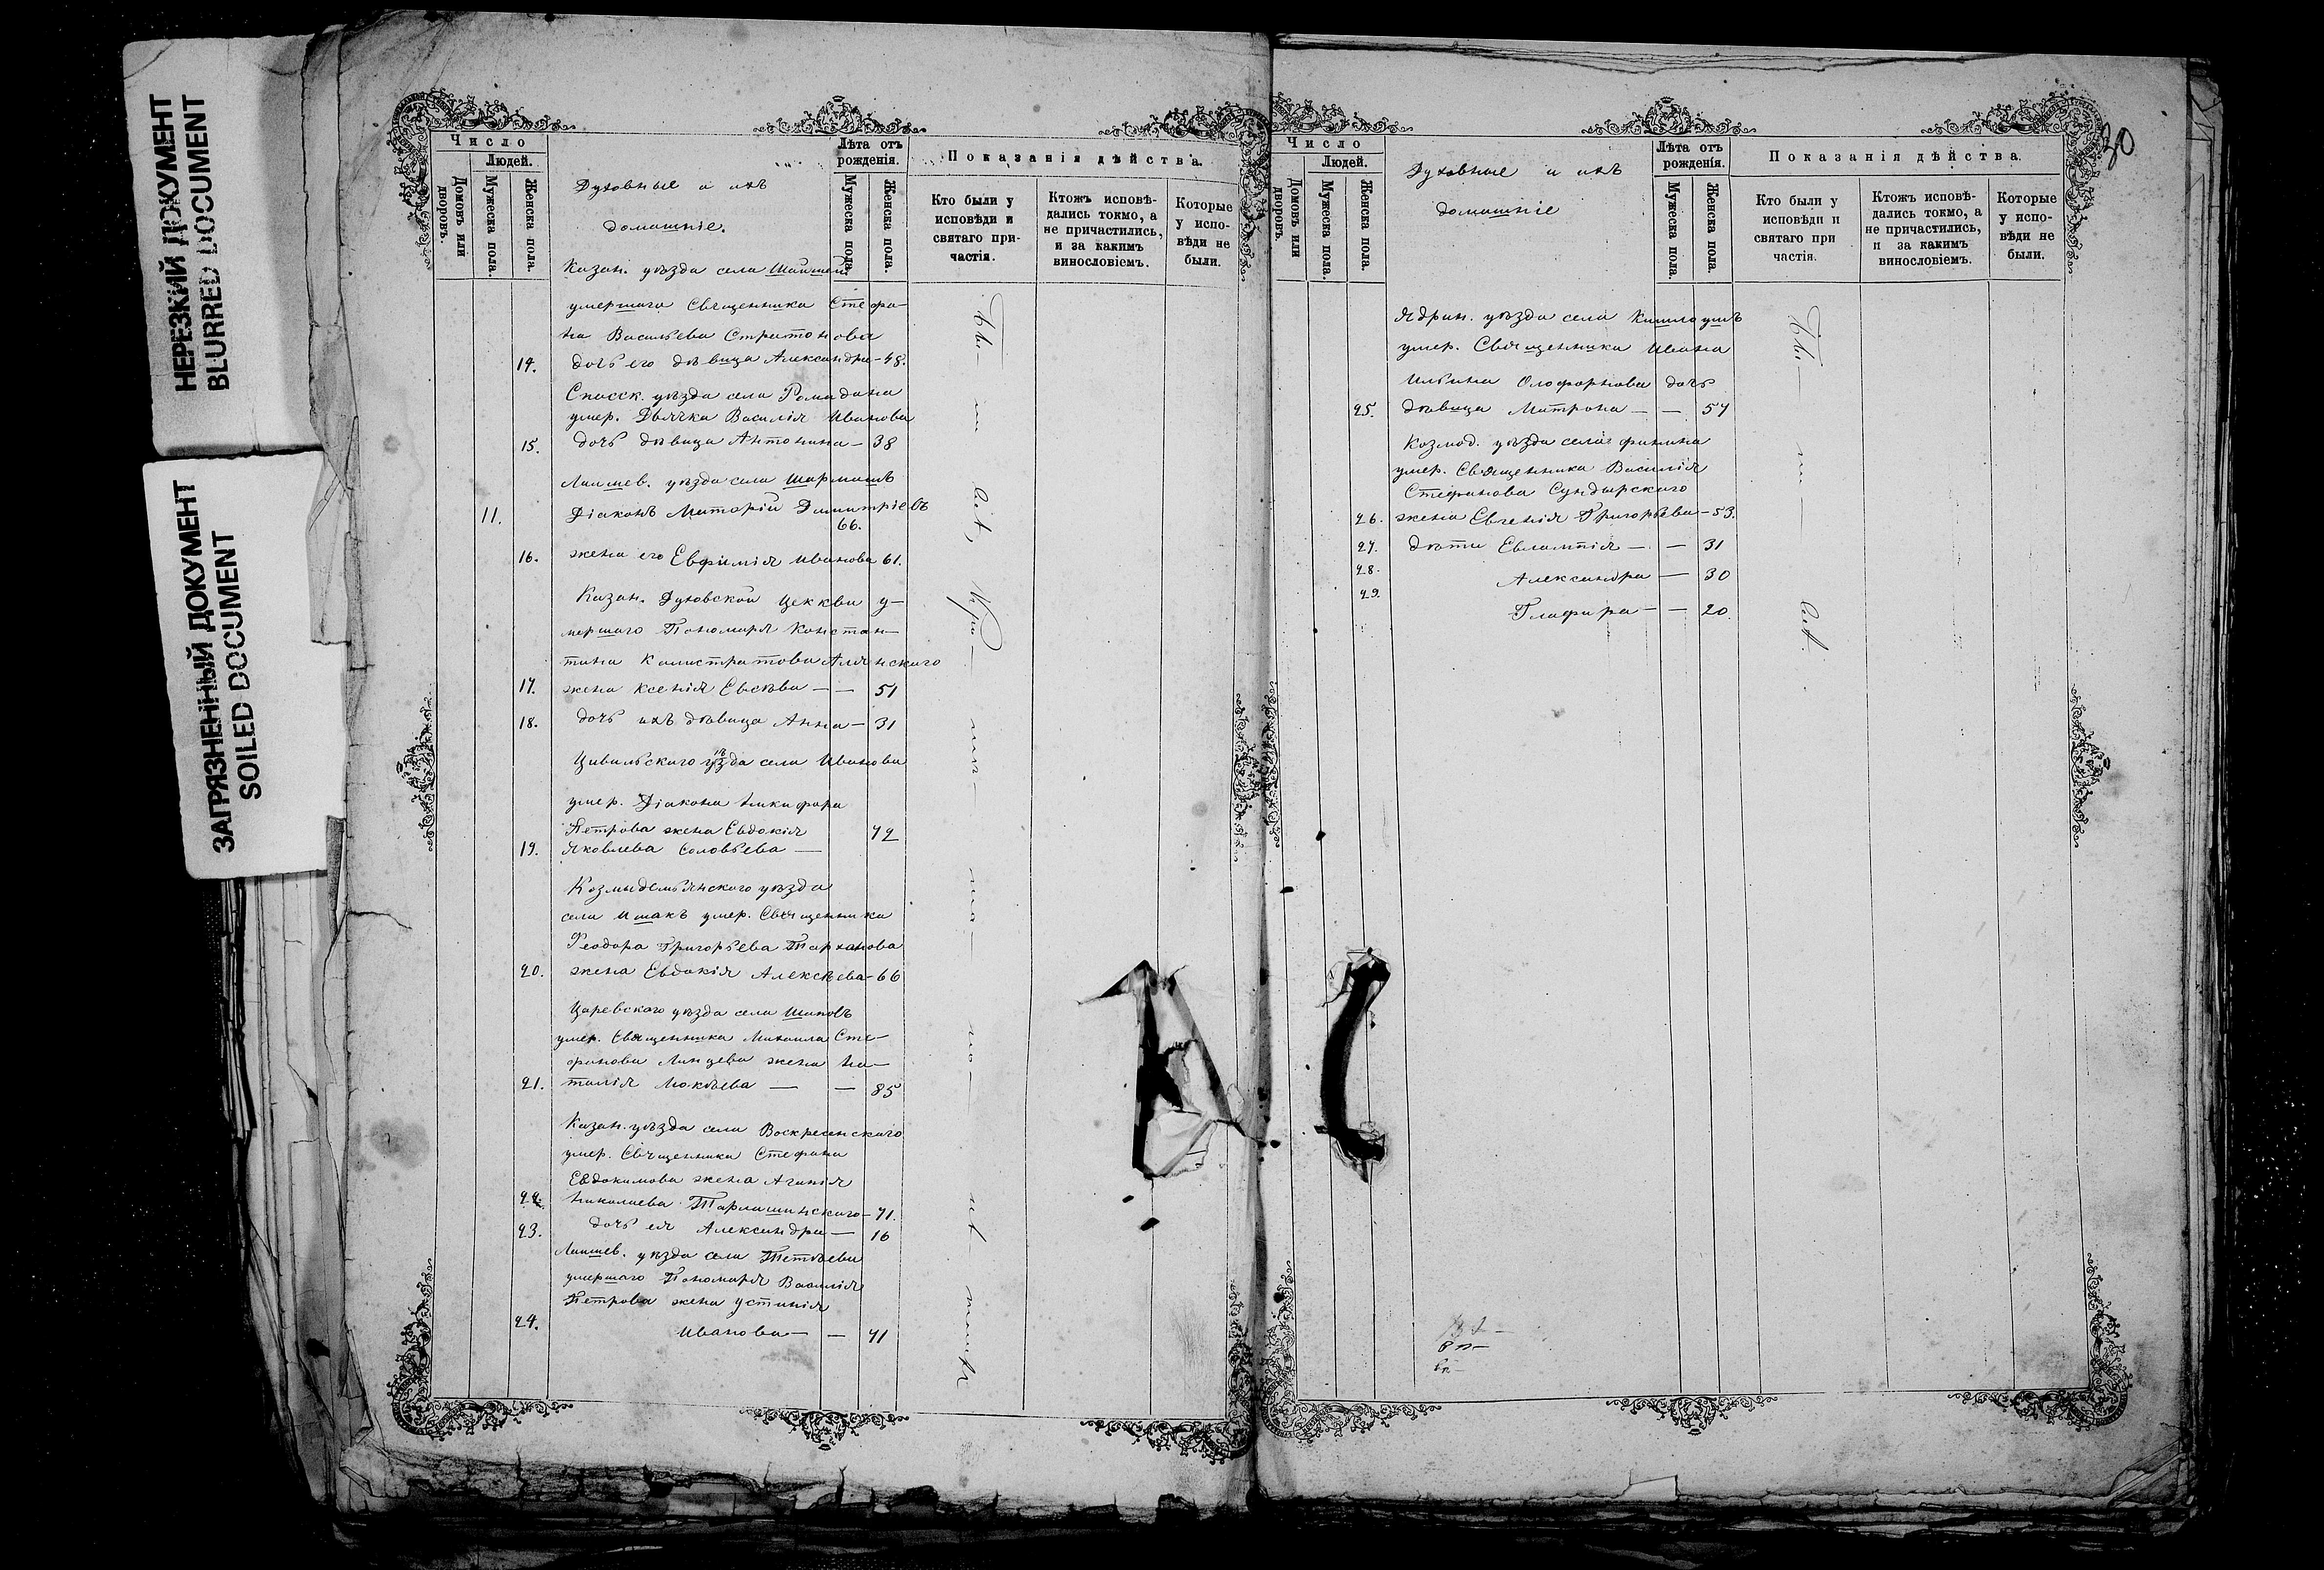 НЕРЕЗКИЙ ДОКУМЕНТ
BLURRED DOCUMENT
ЗАГРЯЗНЕННЫЙ ДОКУМЕНТ
SOILED DOCUMENT
Число
Людей.
Домовъ или дворовъ.
Мужеска пола.
Женска пола.
Духовные и ихъ
домашніе.
Лѣта отъ рожденія.
Мужеска пола.
Женска пола.
Показанія дѣйства.
Кто были у исповѣди и святаго причастія.
Ктожъ исповѣдались токмо, а не причастились, и за какимъ винословіемъ.
Которые у исповѣди не были.
Казан. уѣзда села
умершаго Священника Стефа-
на Васильева Стратонова
14. дочь его дѣвица Александра - 48.
Спасск. уѣзда села Ромадана
умер. Дьячка Василія Иванова
15. дочь дѣвица Антонина - 38
Лаишев. уѣзда села Шармашъ
11. Діаконъ Димитріевъ 66.
16. жена его Евфимія Иванова 61.
Казан. Духовской Цеккви у-
мершаго Пономаря Констан-
тина Калистратова
17. жена Ксенія Евсѣва - - 51
18. дочь ихъ дѣвица Анна - 31
Цивильскаго уѣзда села Иванова
умер. Діакона Никифора
Петрова жена Евдокія 72
19. Яковлева Соловьева -
Козмидемьянскаго уѣзда
села Ишакъ умер. Священника
Феодора Григорьева Тарханова
20. жена Евдокія Алексѣева - 66
Царевскаго уѣзда села
умер. Священника Михаила Сте-
фанова жена На-
21. талія Мокѣева - - 85
Казан. уѣзда села Воскресенскаго
умер. Священника Стефана
Евдокимова жена Агапія
22. Николаева - 71.
23. дочь ея Александра - 16
Лаишев. уѣзда села Тетѣева
умершаго Пономаря Василія
Петрова жена Устинія
24. Иванова - - 71
30
Число
Людей.
Домовъ или дворовъ.
Мужеска пола.
Женска пола.
Духовные и ихъ
домашніе
Лѣта отъ рожденія.
Мужеска пола.
Женска пола.
Показанія дѣйства.
Кто были у исповѣди и святаго при частія.
Ктожъ исповѣдались токмо, а не причастились, и за какимъ винословіемъ.
Которые у исповѣди не были.
Ядрин. уѣзда села
умер. Священника Ивана
Ильина Олофорнова дочь
25. дѣвица Матрона - - 57
Козмод. уѣзда села
умер. Священника Василія
Стефанова Сундырскаго
26. жена Евгенія Григорьева - 53.
27. дѣти Евлампія - - 31
28. Александра - 30
29. Глафира - - 20.